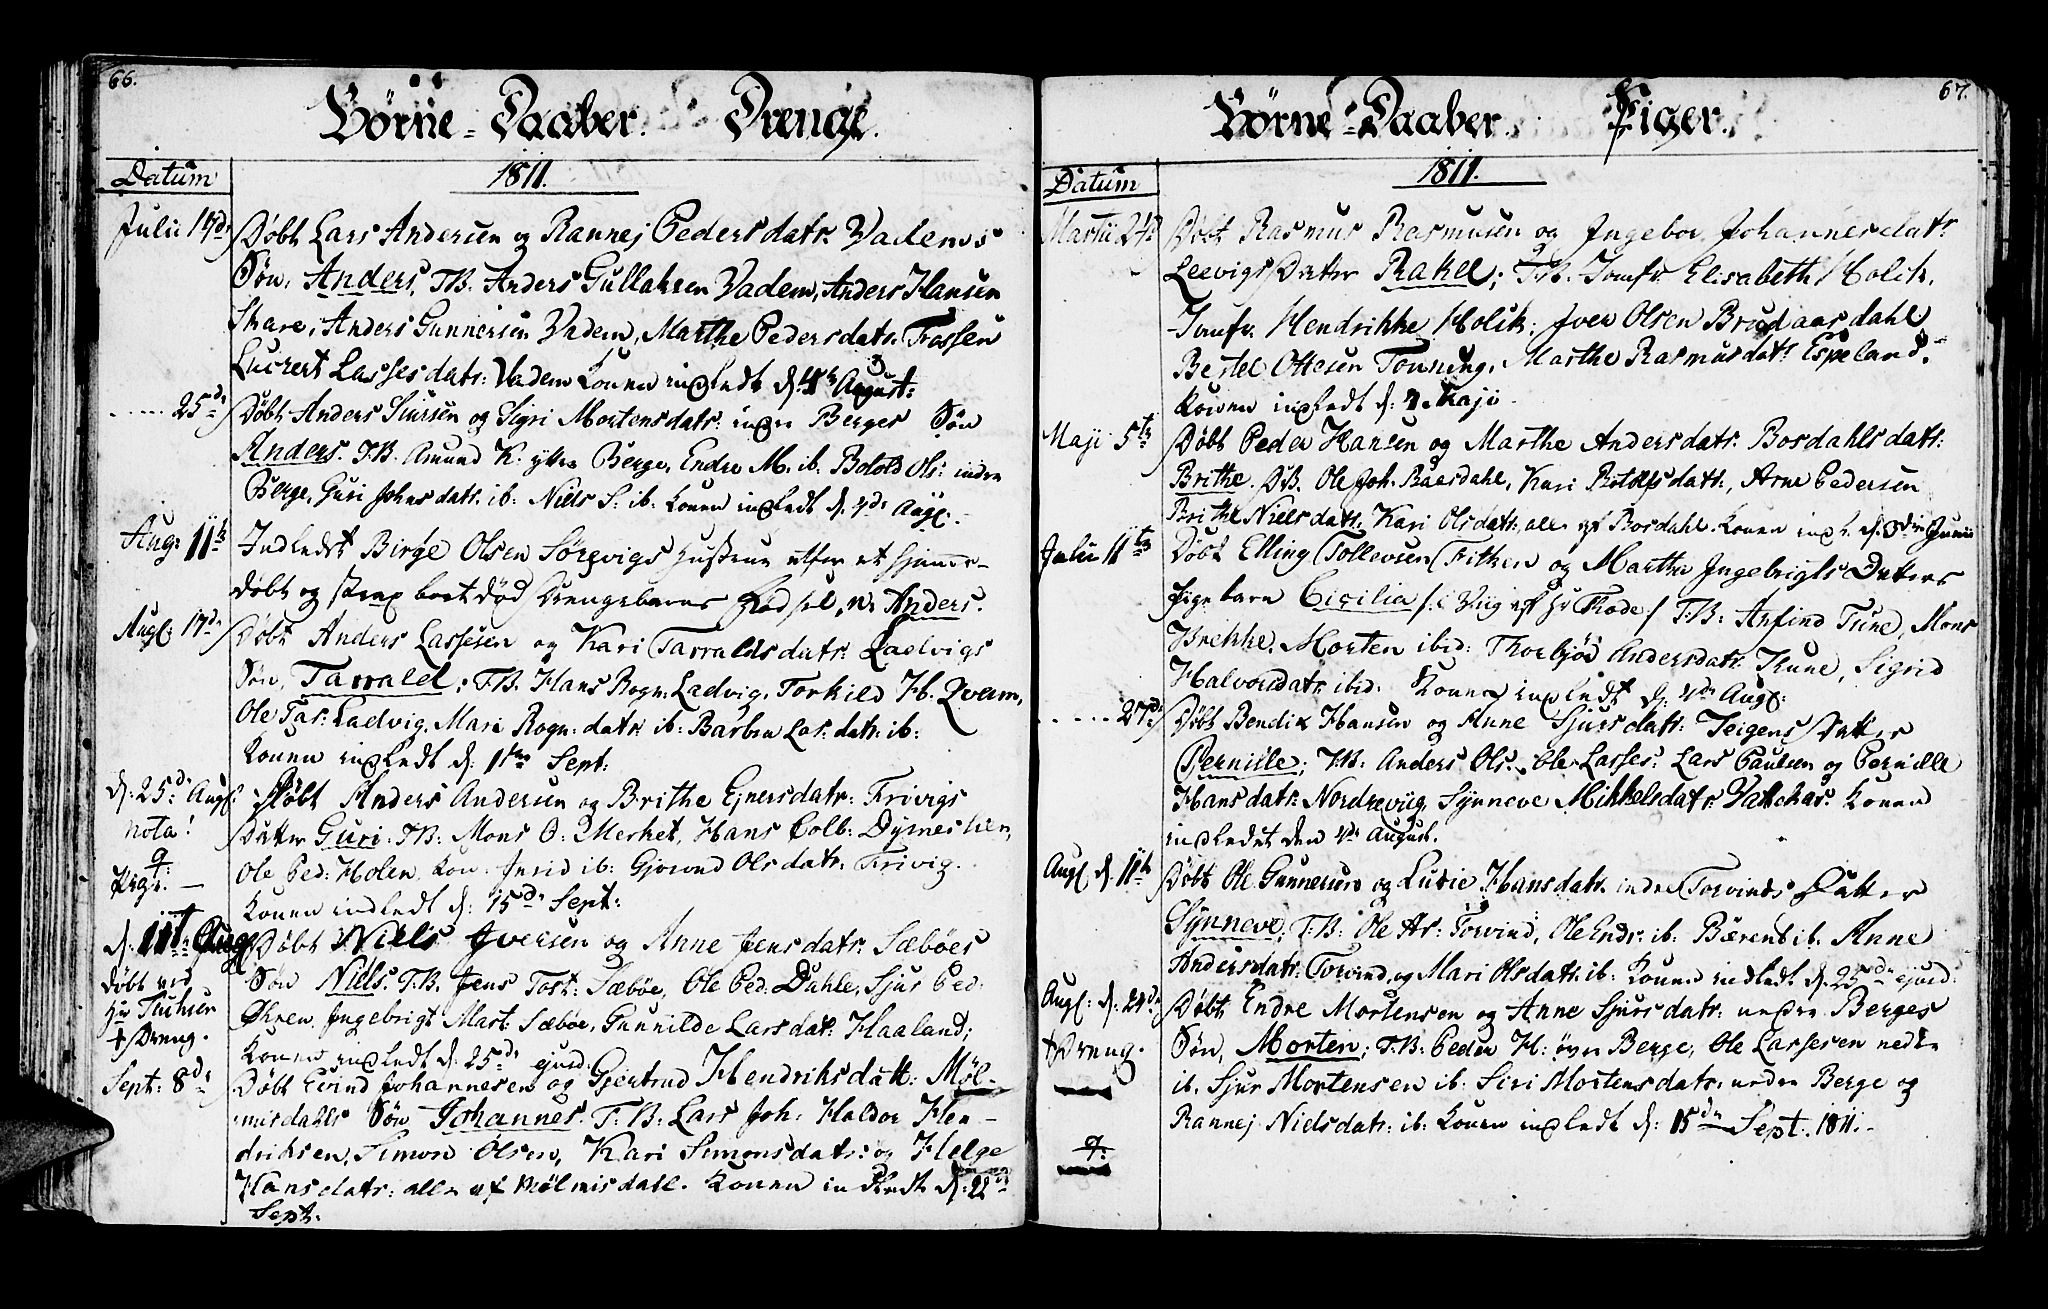 66.
Börne-Daaber. Drenge.
Datum
1811.
Julii 14d. Döbt Lars Andersen og Rannej Pedersdatr. Vadems
Sön, Anders. T.B. Anders Gullaksen Vadem, Anders Hansen
Skare, Anders Gunnersen Vadem, Marthe Pedersdatr. Frossen
Lucret Lassesdatr: Vadem Konen indledt d: August:
..... 25d. Döbt Anders Siursen og Sigri Mortensdatr: indre Berges Sön
Anders. T.B. Amund K. yttre Berge, Endre M. ib. Botold Ols: indre
Berge, Guri Johnsdatr. ib: Niels S. ib. Konen indledt d. 4d. Aug:
Aug: 11te Indledt Birge Olsen Sörevigs Hustrue efter et hjemme-
döbt og strax bort död Drengebarns Födsel, N: Anders.
Aug: 17d. Döbt Anders Lassesen og Kari Tarraldsdatr: Ladvigs
Sön, Tarrald; T.B. Hans Rogn: Ladvig, Torkild H. Qvam,
Ole Tar: Ladvig, Mari Rogn: datr: ib: Barbra Las: datr: ib:
Konen indledt d: 1ste Sept:
d: 25d. Aug: Döbt Anders Andersen og Brithe Ejnersdatr: Frivigs
nota! Datter Guri. T.B: Mons O: Merket, Hans Colb: Dyrneslien,
9: Pige. — Ole Ped: Holen, Kon: Inrid ib: Gjorond Olsdatr: Frivig.
Konen indledt d: 15d. Sept:
d: 11te Aug: Döbt Niels Iversen og Anne Jensdatr: Sæböes
Döbt ved Sön Niels. T.B. Jens Tost: Sæböe, Ole Ped: Dahle, Sjur Ped:
Hr Ökren, Ingebrigt Mart: Sæböe, Gunnilde Larsdatr: Haaland;
† Dreng. Konen indledt d: 25d. ejusd.
Sept: 8d. Döbt Eivind Johannesen og Gjertrud Hendriksdatt: Möl-
misdahls Sön Johannes. T.B: Lars Joh: Haldor Hen-
driksen, Simon Olsen, Kari Simonsdatr: og Helge
Hansdatr: alle af Mölmisdall. Konen indledt d: 22de
Sept:
67.
Börne-Daaber. Piger.
Datum
1811.
Martii 24d. Döbt Rasmus Rasmusen og Ingebor Johannesdatr
Leevigs Datter Rakel; T.B. Jomfr. Elisabeth Holck,
Jomfr. Hendrikke Holck, Iver Olsen Brudaasdahl
Bertel Ottesen Tonning, Marthe Rasmusdatr Espeland.
Konen indledt d: 7. Maji.
Maji 5te Döbt Peder Hansen og Marthe Andersdatr. Bosdahls datr:
Brithe. T.B. Ole Joh. Baasdahl, Kari Rotolfsdatr., Arne Pedersen
Brithe Nielsdatr. Kari Olsdatr. alle af Bosdahl. Konen indl. d. 3die Junii
Julii 11te Döbt Elling Tollevsen Fitken og Marthe Ingebrigts Datters
Pigebarn Cicilia /: i Viig af Hr Thode:/ T.B: Arfind Tune, Mons
Brekke, Morten ibid: Thorbjör Andersdatr. Tune, Sigrid
Halvorsdatr. ibid: Konen indledt d. 4de Aug:
..... 27d. Döbt Bendix Hansen og Anne Sjursdatr: Teigens Datter
Pernille; T.B. Anders Ols: Ole Lasses: Lars Paulsen og Pernille
Hansdatr. Nordreviig, Synneve Mikkelsdatr. Vattekar. Konen
indledet den 4de August.
Aug: d. 11te Döbt Ole Gunnersens og Lucie Hansdatr. indre Torvinds Datter
Synneve; T.B: Ole Ar: Torvind, Ole Endr: ib: Bærent ib. Anne
Andersdatr: Torvind, og Mari Olsdatr. ib: Konen indledt d. 25de ejusd:
Aug: d. 24d. Döbt Endre Mortensen og Anne Sjursdatr: nedre Berges
† Dreng. Sön, Morten; T.B: Peder H: övre Berge, Ole Lassesen nedre
ib. Sjur Mortensen ib: Siri Mortensdatr: nedre Berge og
Rannej Nielsdatr: ib: Konen indledt d: 15de Sept. 1811.
9: